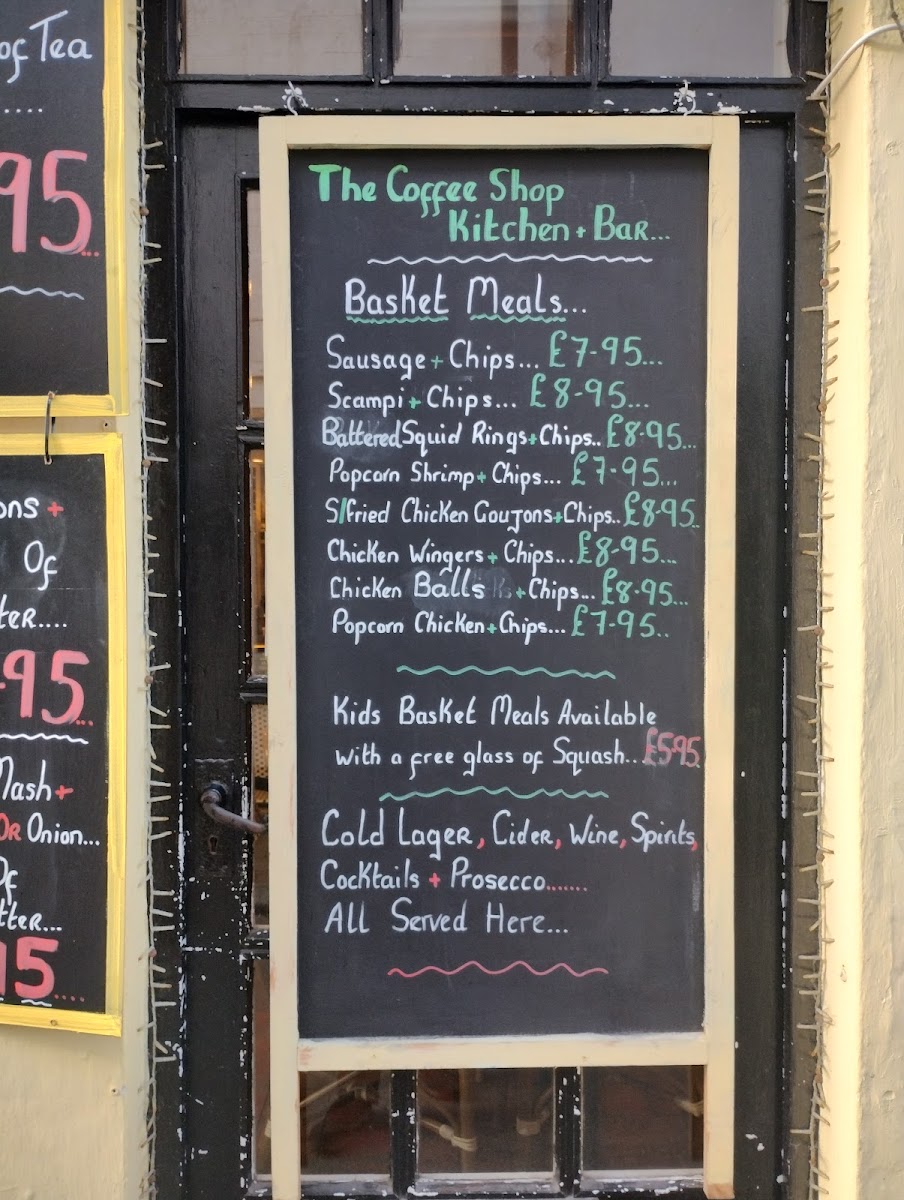 of Tea
.....
95...
ons +
Of
ter....
-95...
Mash+
OR Onion...
Of
tter...
15....
The Coffee Shop
Kitchen + Bar...
Basket Meals...
Sausage + Chips... £7-95...
Scampi + Chips... £8-95...
Battered Squid Rings + Chips.. £8-95...
Popcorn Shrimp + Chips... £7-95...
S/Fried Chicken Goujons + Chips.. £8-95..
Chicken Wingers + Chips... £8-95...
Chicken Balls + Chips... £8-95...
Popcorn Chicken + Chips... £7-95..
Kids Basket Meals Available
with a free glass of Squash... £5-95.
Cold Lager, Cider, Wine, Spirits,
Cocktails + Prosecco.......
All Served Here...